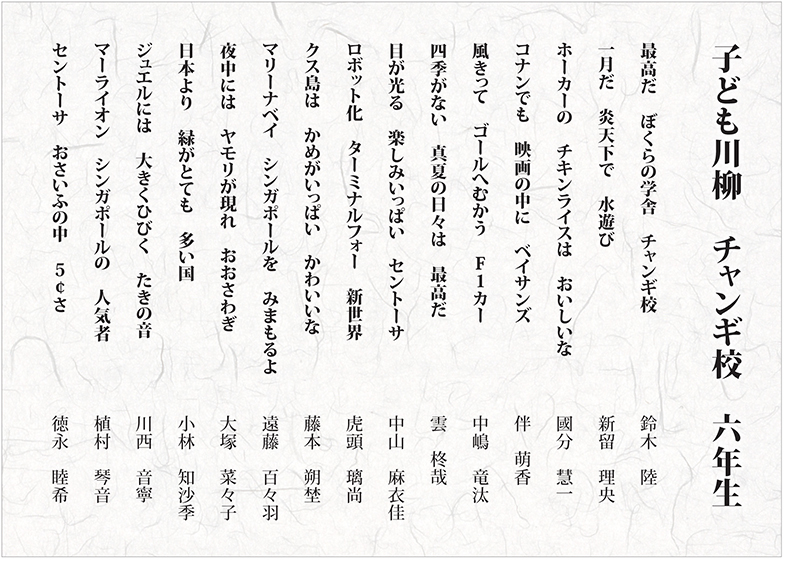 子ども川柳 チャンギ校 六年生
最高だ ぼくらの学舎 チャンギ校 鈴木 陸
一月だ 炎天下で 水遊び 新留 理央
ホーカーの チキンライスは おいしいな 國分 慧一
コナンでも 映画の中に ベイサンズ 伴 萌香
風きって ゴールへむかう F1カー 中嶋 竜汰
四季がない 真夏の日々は 最高だ 雲 柊哉
目が光る 楽しみいっぱい セントーサ 中山 麻衣佳
ロボット化 ターミナルフォー 新世界 虎頭 璃尚
クス島は かめがいっぱい かわいいな 藤本 朔埜
マリーナベイ シンガポールを みまもるよ 遠藤 百々羽
夜中には ヤモリが現れ おおさわぎ 大塚 菜々子
日本より 緑がとても 多い国 小林 知沙季
ジュエルには 大きくひびく たきの音 川西 音寧
マーライオン シンガポールの 人気者 植村 琴音
セントーサ おさいふの中 5¢さ 徳永 睦希